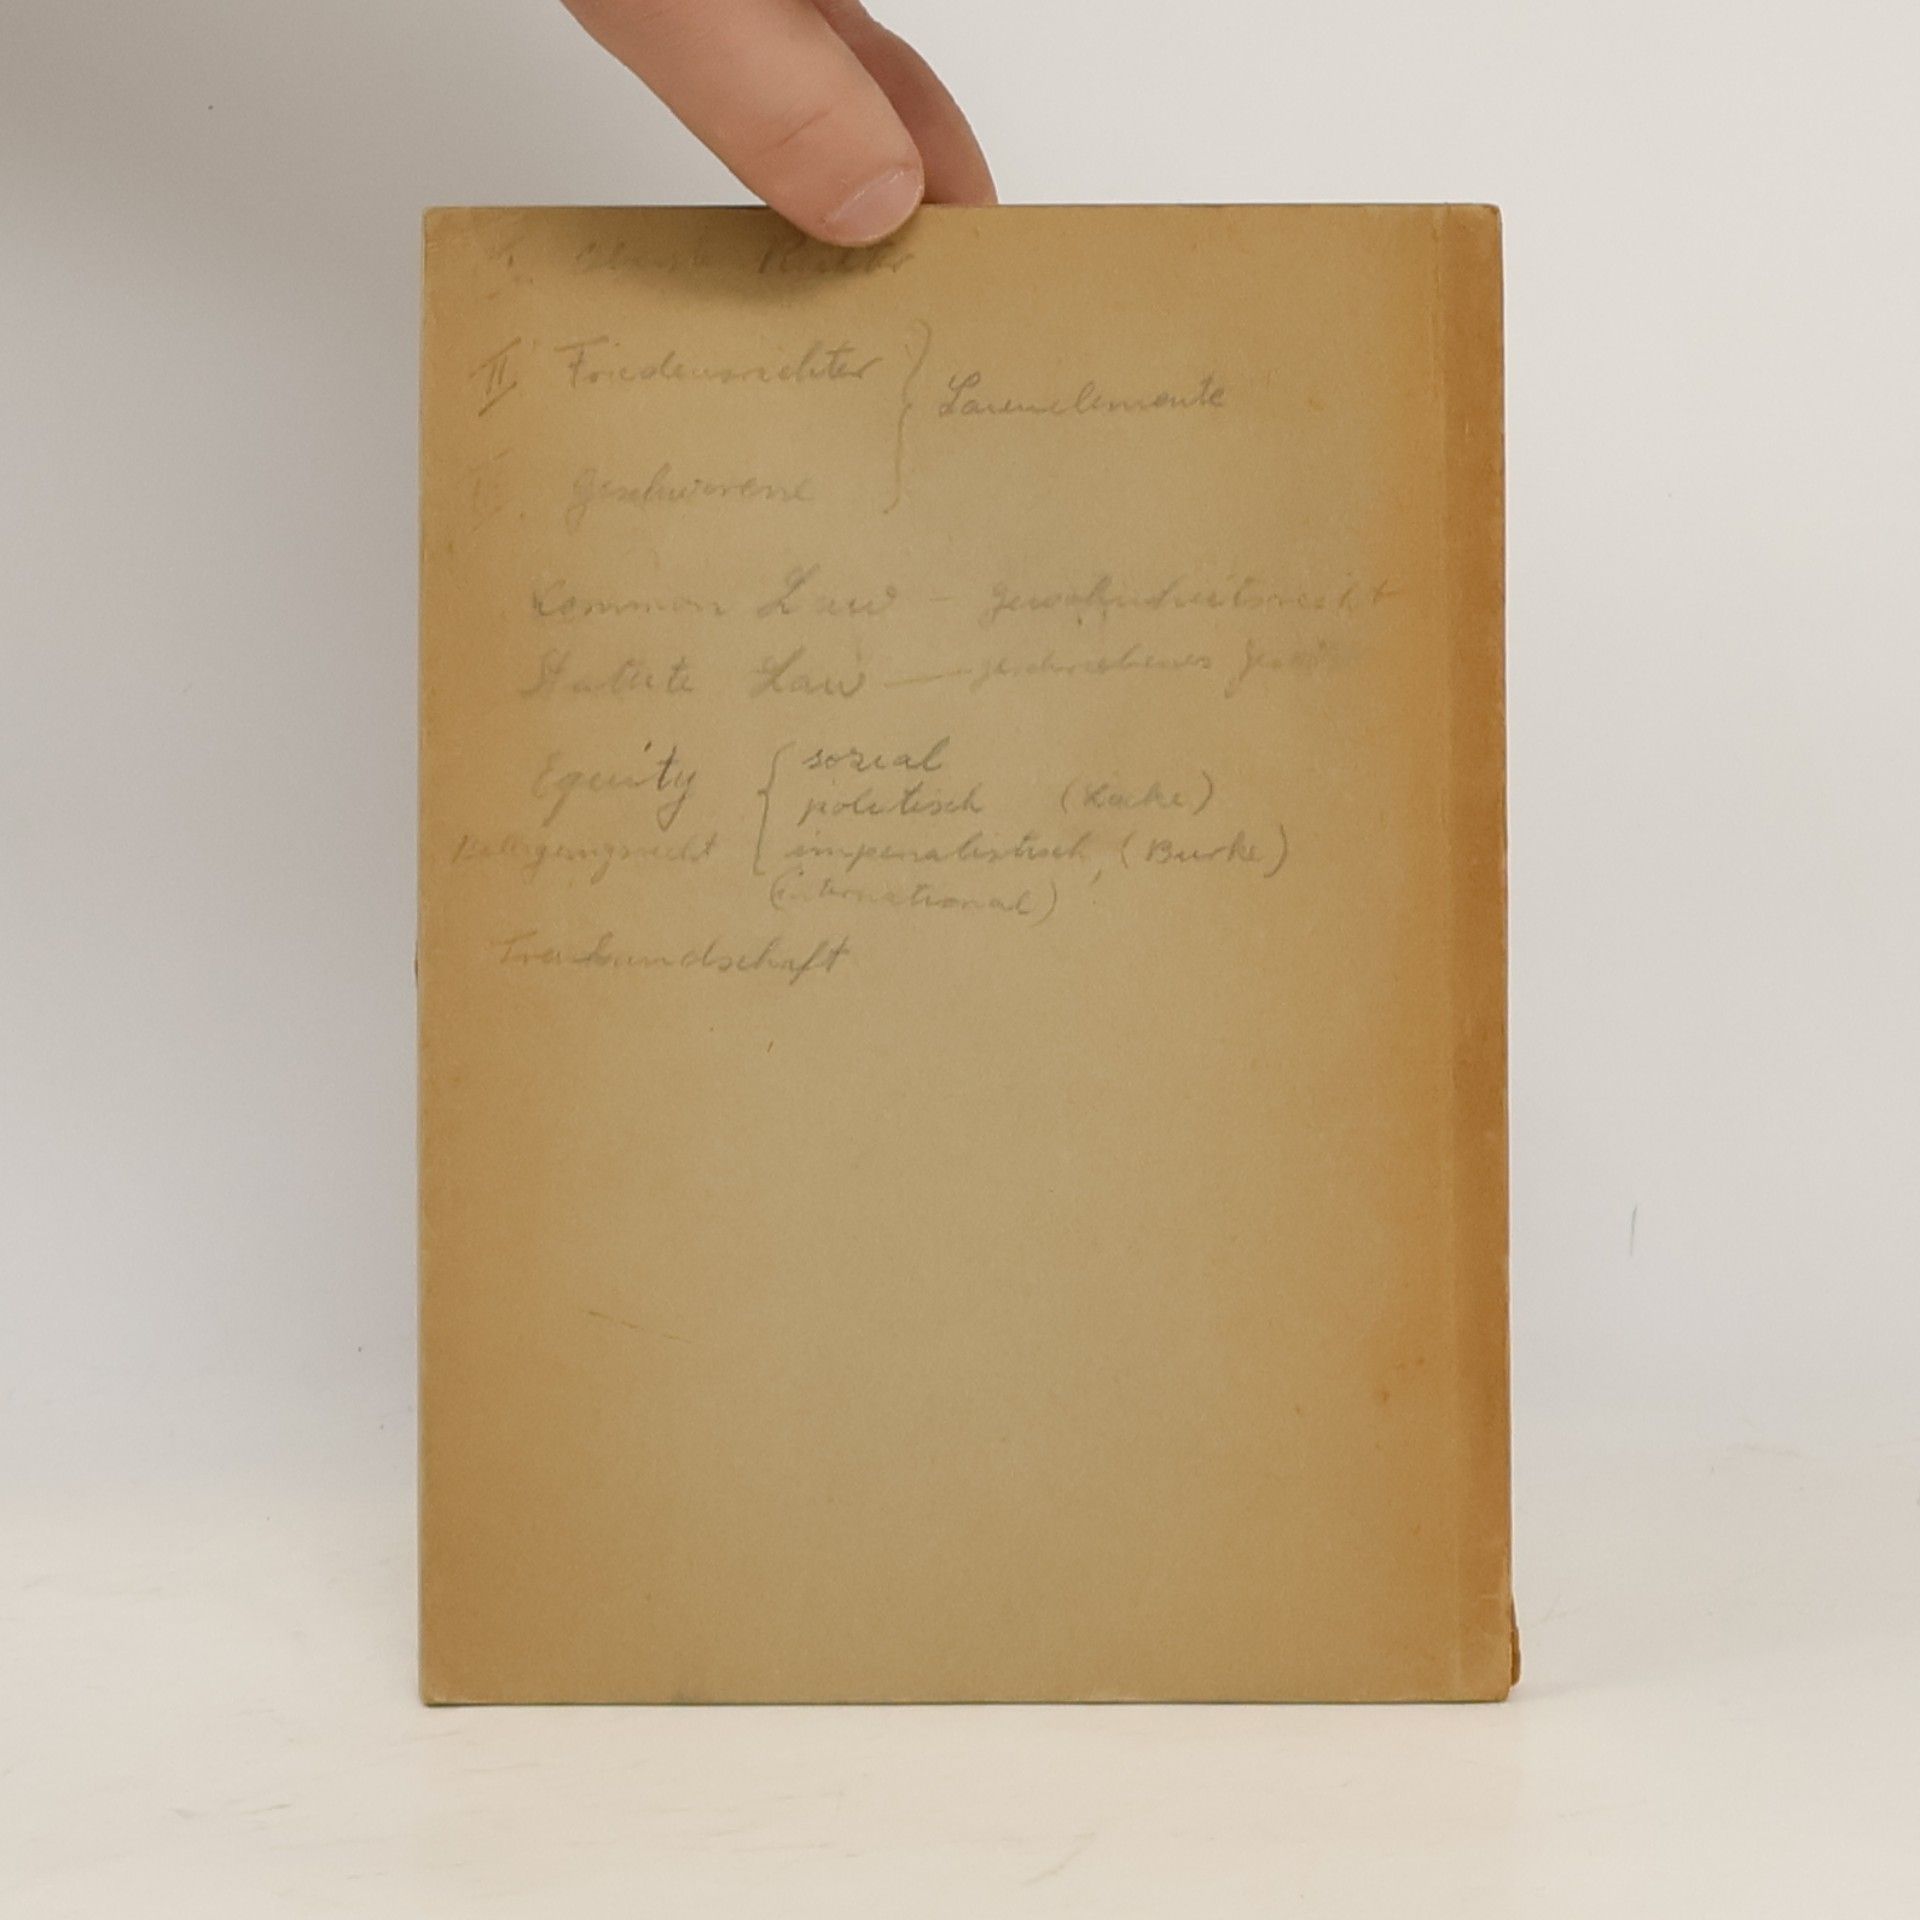 I. Oberste Richter
II. Friedensrichter } Laienelemente
III. Geschworene
Common Law - Gewohnheitsrecht
Statute Law - geschriebenes Gesetz
Equity { sozial
politisch (Locke)
imperialistisch, (Burke)
(international)
Treuhandschaft